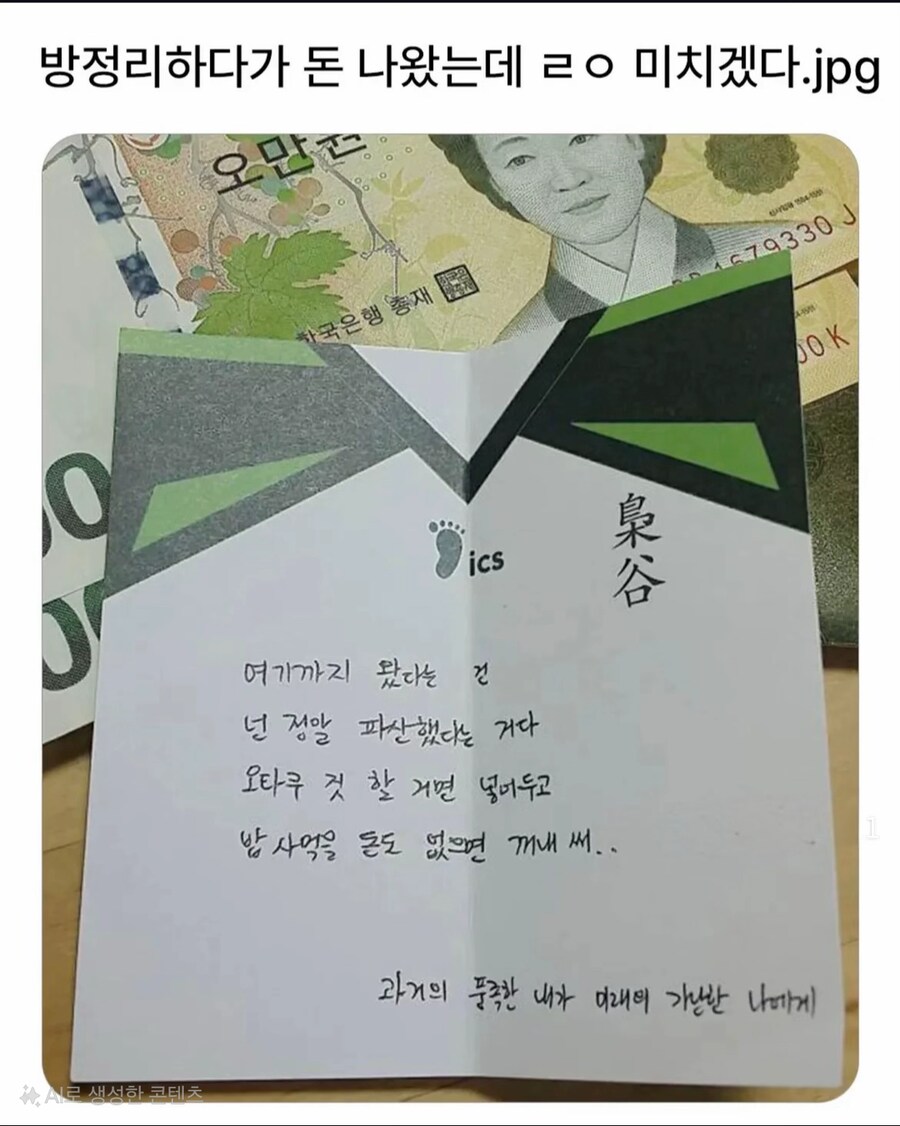 방정리하다가 돈 나왔는데 ㄹㅇ 미치겠다.jpg
오만원
한국은행 총재
1679330 J
00 K
00
00
ics
梟谷
여기까지 왔다는 건
넌 정말 파산했다는 거다
오타쿠 짓 할 거면 넣어두고
밥 사먹을 돈도 없으면 꺼내 써..
과거의 풍족한 내가 미래의 가난한 나에게
AI로 생성한 콘텐츠